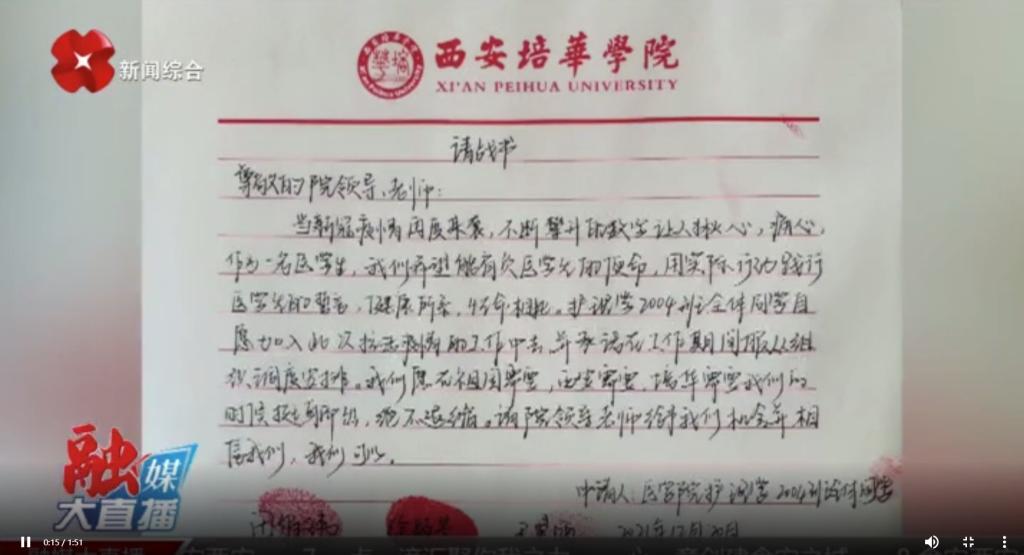 新闻综合
西安培華學院
XI'AN PEIHUA UNIVERSITY
请战书
尊敬的院领导、老师:
当新冠疫情再度来袭,不断攀升的数字让人揪心,痛心,
作为一名医学生,我们希望能肩负医学生的使命,用实际行动践行
医学生的誓言,健康所系,性命相托。护理学2004班全体同学自
愿加入此次抗击疫情的工作中去并承诺在工作期间服从组
织调度安排。我们愿在祖国需要,西安需要,培华需要我们的
时候挺身而出,绝不退缩。请院领导老师给予我们机会并相
信我们,我们可以。
申请人:医学院护理学2004班全体同学
2021年12月20日
融媒
大直播
0:15 / 1:51